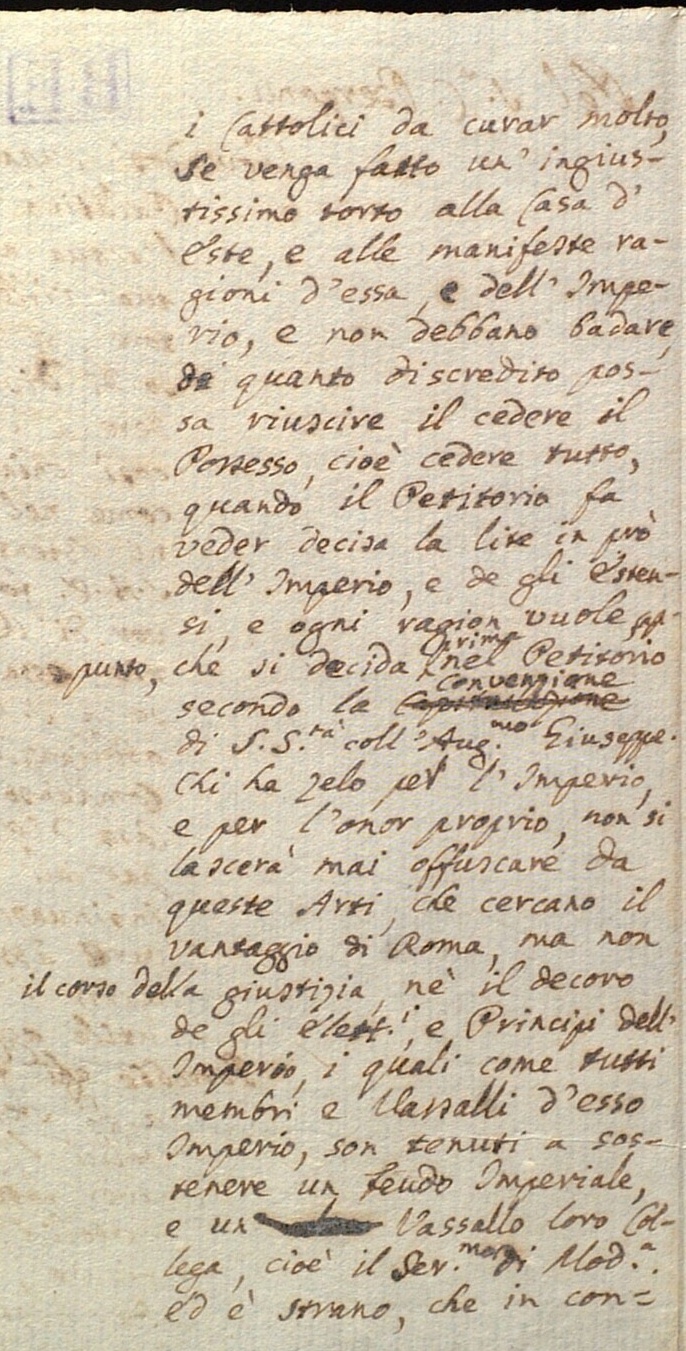 i Cattolici da curar molto,
se venga fatto un' ingius-
tissimo torto alla Casa d'
Este, e alle manifeste ra-
gioni d'essa, e dell' Impe-
rio, e non debbano badare,
di quanto discredito pos-
sa riuscire il cedere il
Possesso, cioè cedere tutto,
quando il Petitorio fa
veder decisa la lite in prò
dell' Imperio, e de gli Esten-
si, e ogni ragion vuole, ap-
punto, che si decida prima nel Petitorio
secondo la Convenzione
di S. S.tà coll' Aug.mo Giuseppe.
Chi ha zelo per l' Imperio,
e per l' onor proprio, non si
lascerà mai offuscare da
queste Arti, che cercano il
vantaggio di Roma, ma non
il corso della giustizia, nè il decoro
de gli Elett.i, e Principi dell'
Imperio, i quali come tutti
membri e Vassalli d'esso
Imperio, son tenuti a sos-
tenere un feudo Imperiale,
e un Vassallo loro Col-
lega, cioè il Ser.mo di Mod.a.
Ed è strano, che in con-